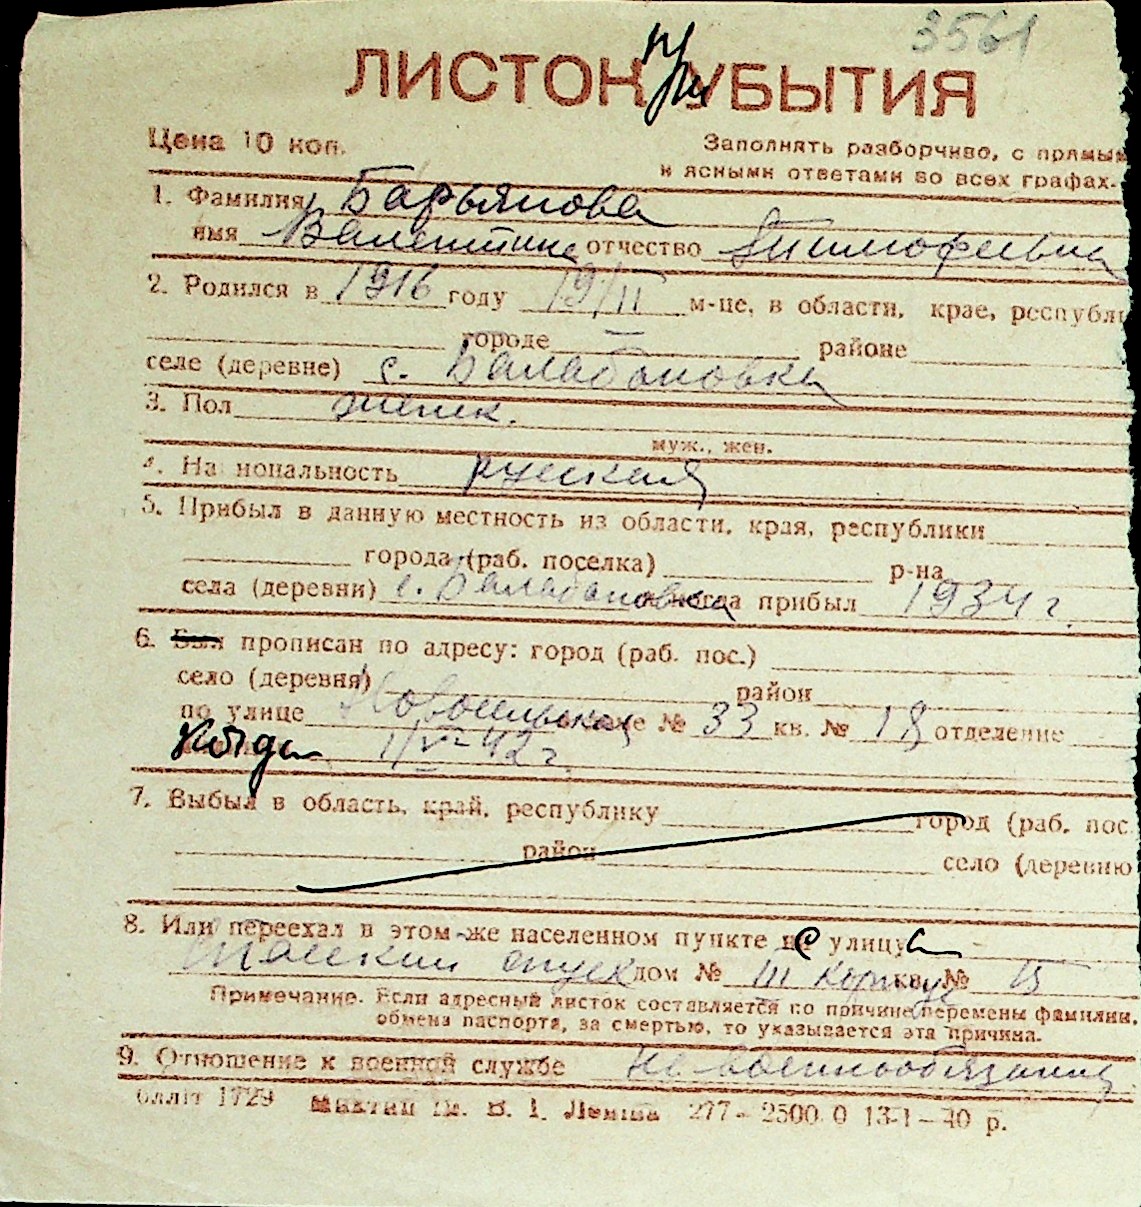 3561
ЛИСТОК при УБЫТИЯ
Цена 10 коп.
Заполнять разборчиво, с прямым
и ясными ответами во всех графах.
1. Фамилия Барьянова
имя Валентина отчество Тимофеевна
2. Родился в 1916 году 19/II м-це, в области, крае, республи
городе — районе
селе (деревне) с. Балабановка
3. Пол женск.
муж., жен.
4. На иональность русская
5. Прибыл в данную местность из области, края, республики
города (раб. поселка) р-на
села (деревни) с. Балабановка когда прибыл 1934 г.
6. Был прописан по адресу: город (раб. пос.)
село (деревня) район
по улице Новосельская доме № 33 кв. № 18 отделение
Когда 1/VI 42 г.
7. Выбыл в область, край, республику город (раб. пос.
район село (деревню
8. Или переехал в этом же населенном пункте не улицу с
спуск дом № III корпус кв. № 15
Примечание. Если адресный листок составляется по причине перемены фамилии,
обмена паспорта, за смертью, то указывается эта причина.
9. Отношение к военной службе не военнообязанная
облліт 1729 ім. В. І. Леніна 277-2500.0 13-1-40 р.